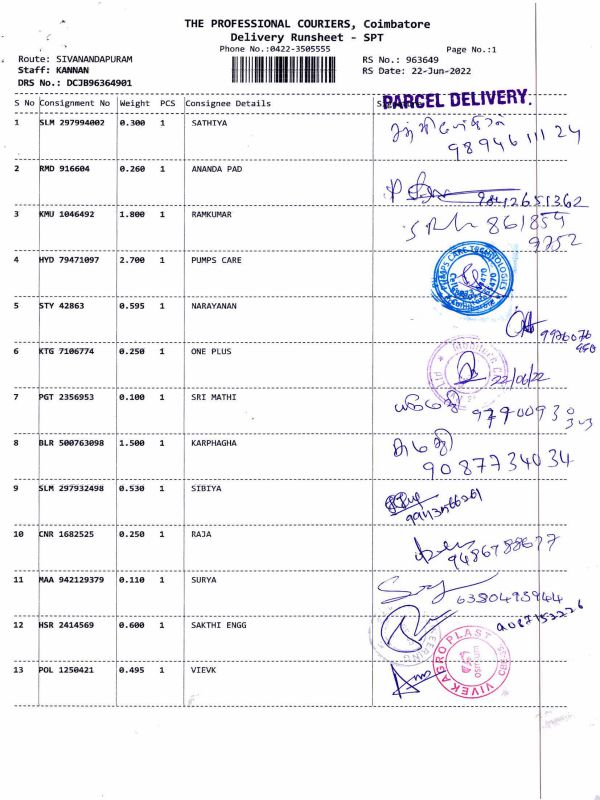 THE PROFESSIONAL COURIERS, Coimbatore
Delivery Runsheet - SPT
Phone No.:0422-3505555
Page No.:1
Route: SIVANANDAPURAM
RS No.: 963649
Staff: KANNAN
RS Date: 22-Jun-2022
DRS No.: DCJB96364901
S No Consignment No Weight PCS Consignee Details
PARCEL DELIVERY.
1 SLM 297994002 0.300 1 SATHIYA
9894611124
2 RMD 916604 0.260 1 ANANDA PAD
9842651362
3 KMU 1046492 1.800 1 RAMKUMAR
861859
9252
4 HYD 79471097 2.700 1 PUMPS CARE
PUMPS CARE TECHNOLOGIES
5 STY 42863 0.595 1 NARAYANAN
6 KTG 7106774 0.250 1 ONE PLUS
22/06/22
7 PGT 2356953 0.100 1 SRI MATHI
8 BLR 500763098 1.500 1 KARPHAGHA
9087734034
9 SLM 297932498 0.530 1 SIBIYA
10 CNR 1682525 0.250 1 RAJA
9486788677
11 MAA 942129379 0.110 1 SURYA
6380495944
12 HSR 2414569 0.600 1 SAKTHI ENGG
13 POL 1250421 0.495 1 VIEVK
VIVEK AGRO PLAST